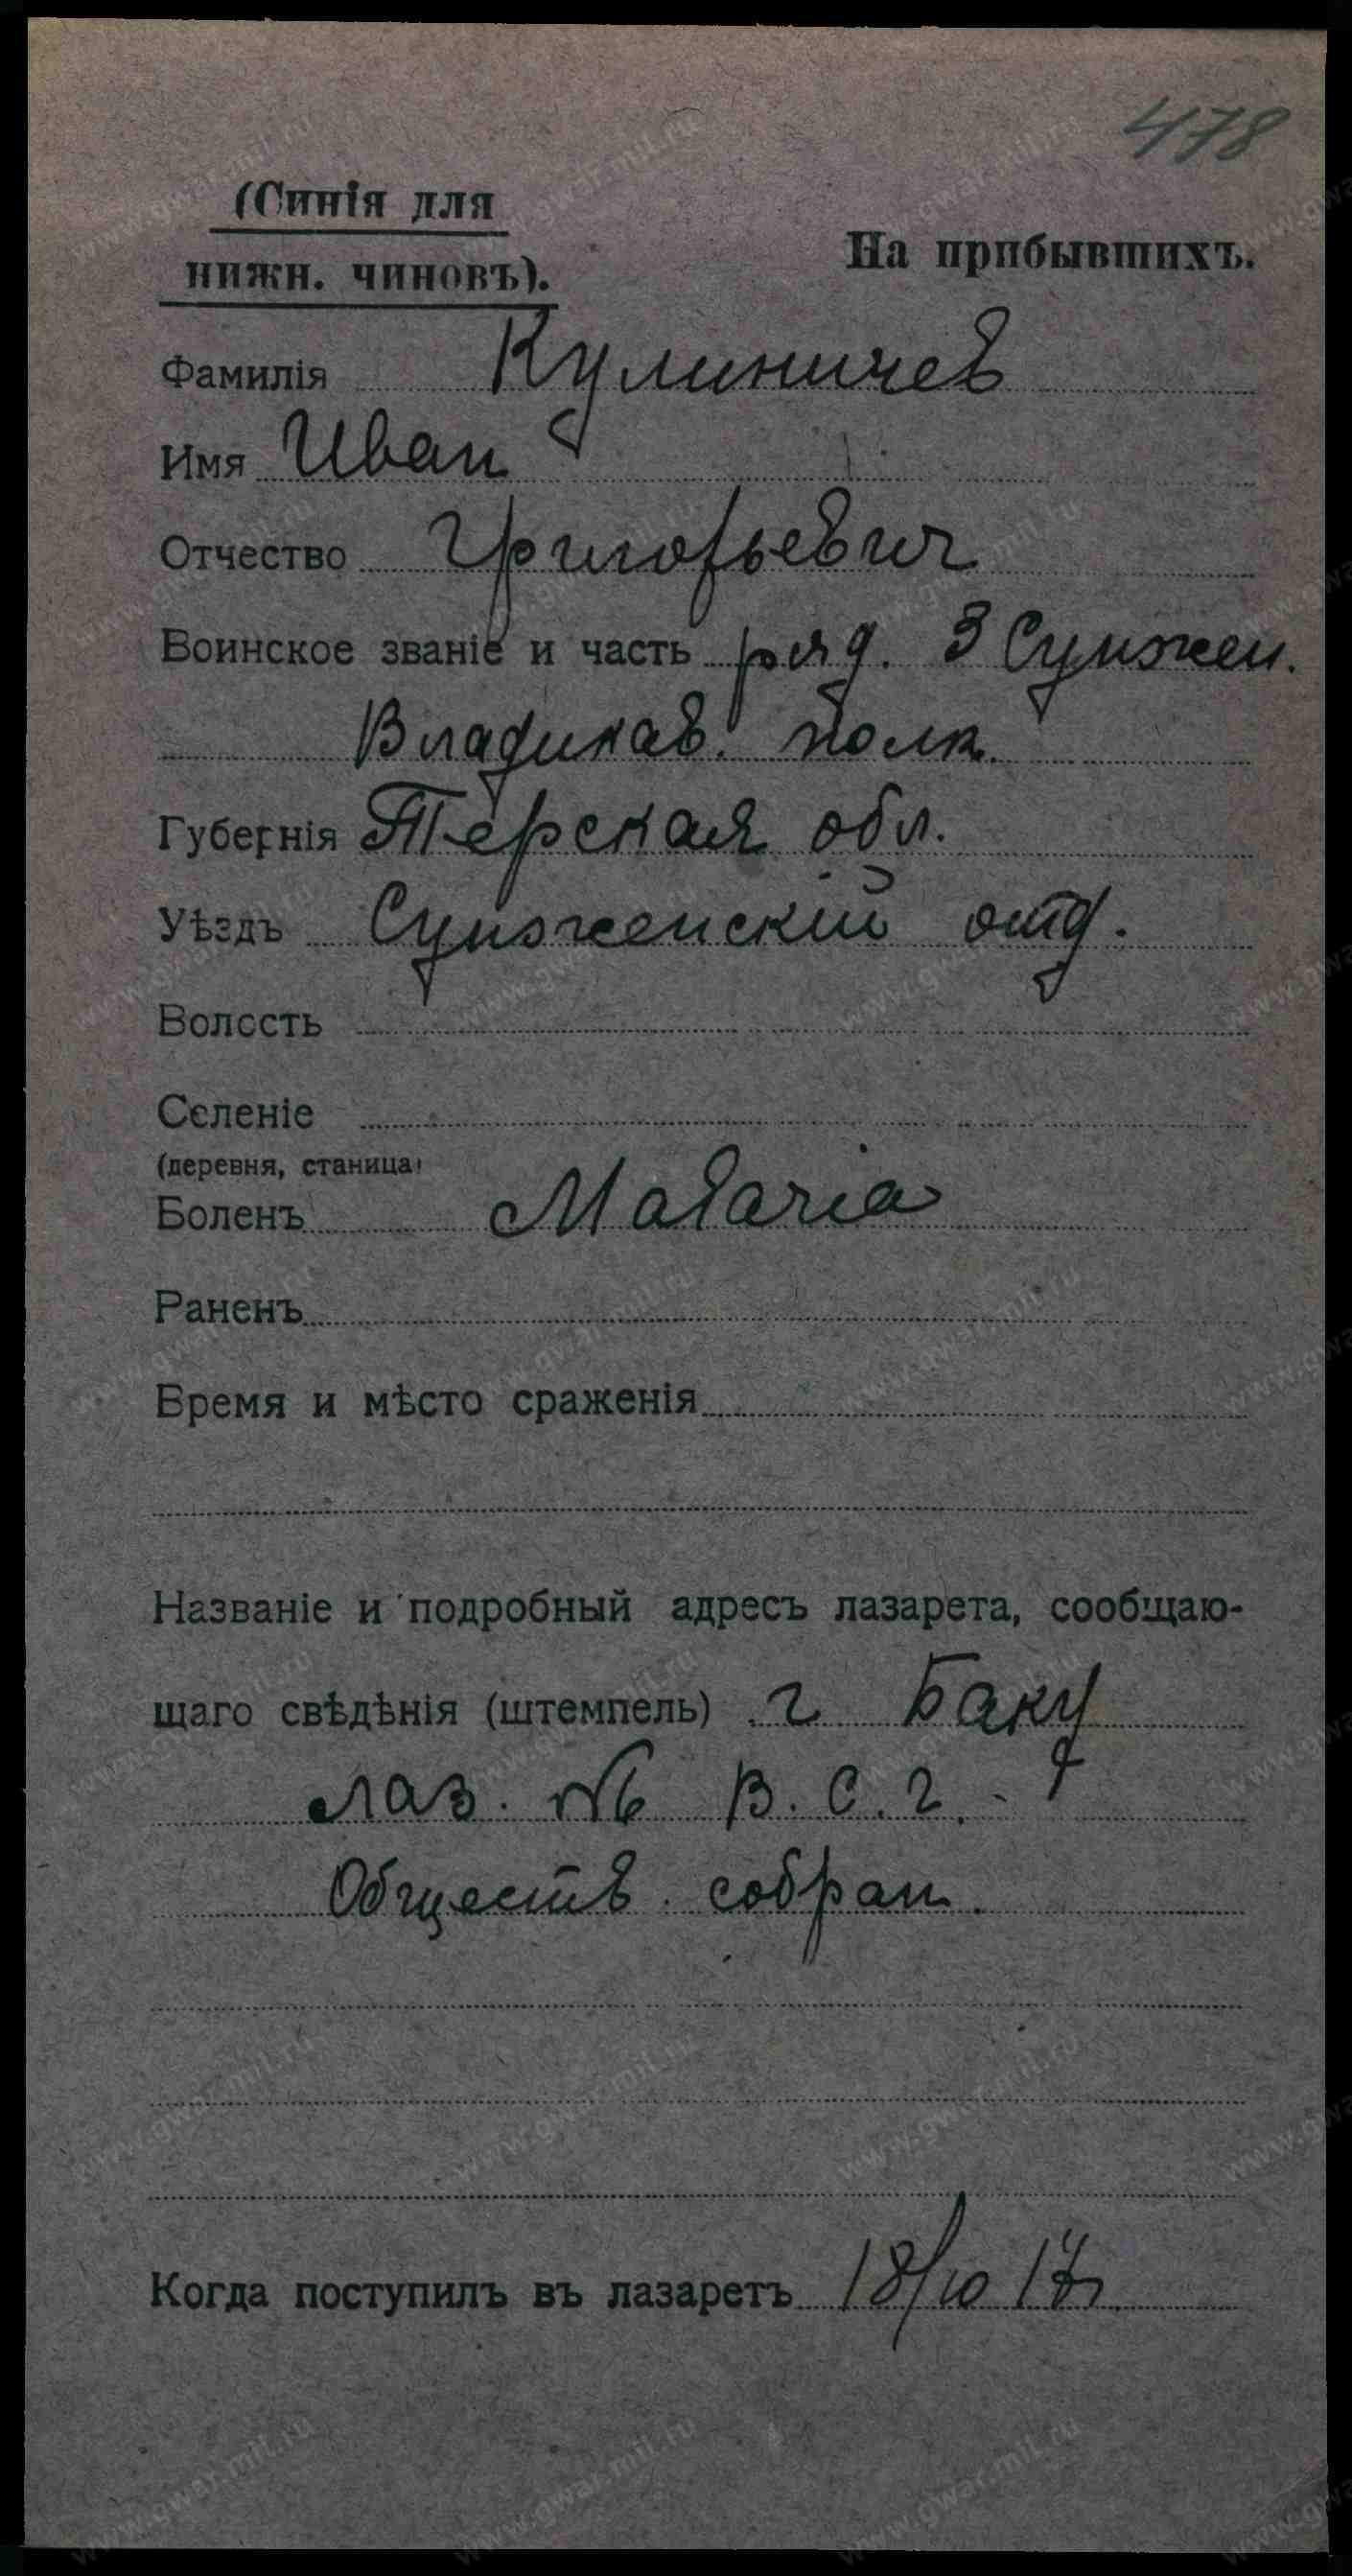 478
(Синія для
нижн. чиновъ).
На прибывшихъ.
Фамилія Кулиничев
Имя Иван
Отчество Григорьевич
Воинское званіе и часть ряд. 3 Сунжен.
Владикав. полк.
Губернія Терская обл.
Уѣздъ Сунженскій отд.
Волость
Селеніе
(деревня, станица)
Боленъ Malaria
Раненъ
Время и мѣсто сраженія
Названіе и подробный адресъ лазарета, сообщаю-
щаго свѣдѣнія (штемпель) г Баку
лаз. №6 В. С. г.
Обществ. собран.
Когда поступилъ въ лазаретъ 18/10 17г
www.gwar.mil.ru